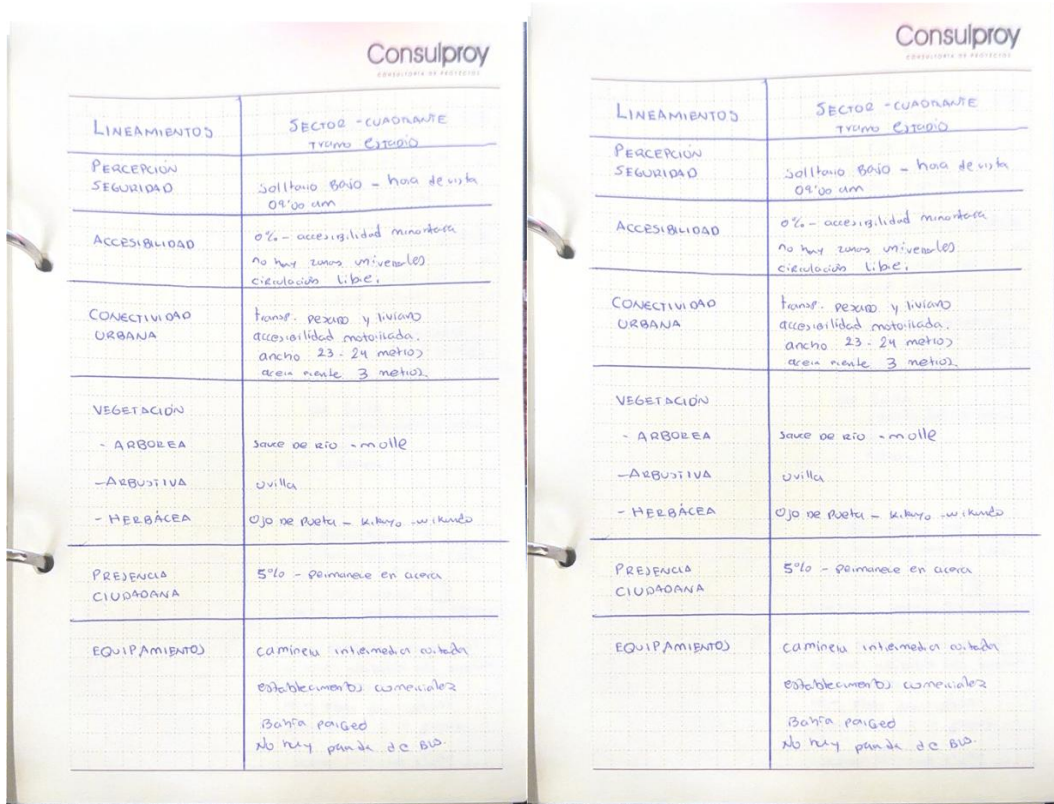 Consulproy
CONSULTORIA DE PROYECTOS
LINEAMIENTOS
SECTOR - CUADRANTE
TRAMO ESTADIO
PERCEPCIÓN
SEGURIDAD
solitario BAJO - hora de visita
09:00 am
ACCESIBILIDAD
0% - accesibilidad minoritaria
no hay zonas universales
circulación libre.
CONECTIVIDAD
URBANA
transp. pesado y liviano
accesibilidad motorizada.
ancho 23 - 24 metros
acera 3 metros.
VEGETACIÓN
- ARBOREA
sauce DE RÍO - molle
- ARBUSTIVA
uvilla
- HERBÁCEA
OJO DE - kikuyo -
PRESENCIA
CIUDADANA
5% - permanece en acera
EQUIPAMIENTOS
camineria intermedia
establecimientos comerciales
Bahía
No hay parada de BUS.
Consulproy
CONSULTORIA DE PROYECTOS
LINEAMIENTOS
SECTOR - CUADRANTE
TRAMO ESTADIO
PERCEPCIÓN
SEGURIDAD
solitario BAJO - hora de visita
09:00 am
ACCESIBILIDAD
0% - accesibilidad minoritaria
no hay zonas universales
circulación libre.
CONECTIVIDAD
URBANA
transp. pesado y liviano
accesibilidad motorizada.
ancho 23 - 24 metros
acera 3 metros.
VEGETACIÓN
- ARBOREA
sauce DE RÍO - molle
- ARBUSTIVA
uvilla
- HERBÁCEA
OJO DE - kikuyo -
PRESENCIA
CIUDADANA
5% - permanece en acera
EQUIPAMIENTOS
camineria intermedia
establecimientos comerciales
Bahía
No hay parada de BUS.